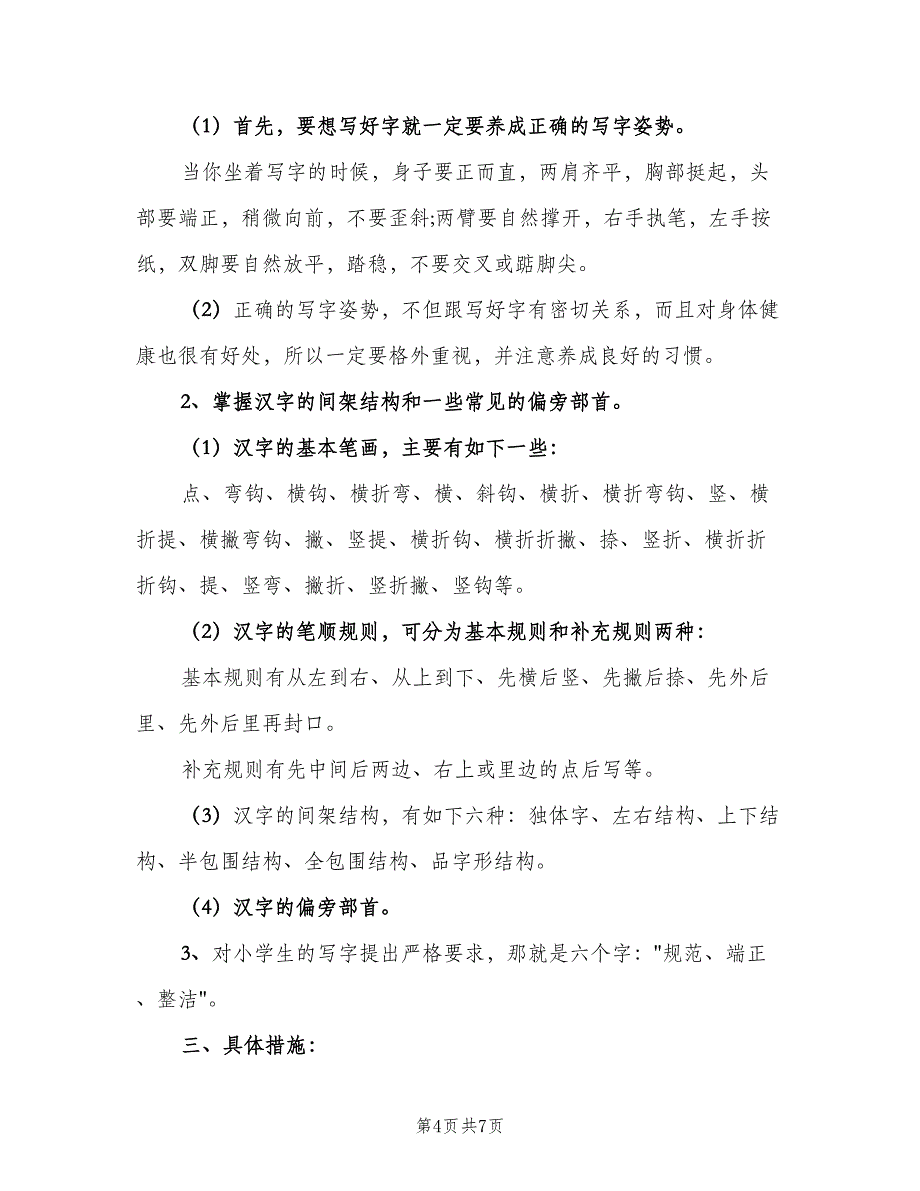 （1）首先，要想写好字就一定要养成正确的写字姿势。
当你坐着写字的时候，身子要正而直，两肩齐平，胸部挺起，头
部要端正，稍微向前，不要歪斜;两臂要自然撑开，右手执笔，左手按
纸，双脚要自然放平，踏稳，不要交叉或踮脚尖。
（2）正确的写字姿势，不但跟写好字有密切关系，而且对身体健
康也很有好处，所以一定要格外重视，并注意养成良好的习惯。
2、掌握汉字的间架结构和一些常见的偏旁部首。
（1）汉字的基本笔画，主要有如下一些：
点、弯钩、横钩、横折弯、横、斜钩、横折、横折弯钩、竖、横
折提、横撇弯钩、撇、竖提、横折钩、横折折撇、捺、竖折、横折折
折钩、提、竖弯、撇折、竖折撇、竖钩等。
（2）汉字的笔顺规则，可分为基本规则和补充规则两种：
基本规则有从左到右、从上到下、先横后竖、先撇后捺、先外后
里、先外后里再封口。
补充规则有先中间后两边、右上或里边的点后写等。
（3）汉字的间架结构，有如下六种：独体字、左右结构、上下结
构、半包围结构、全包围结构、品字形结构。
（4）汉字的偏旁部首。
3、对小学生的写字提出严格要求，那就是六个字："规范、端正
、整洁"。
三、具体措施：
第4页共7页